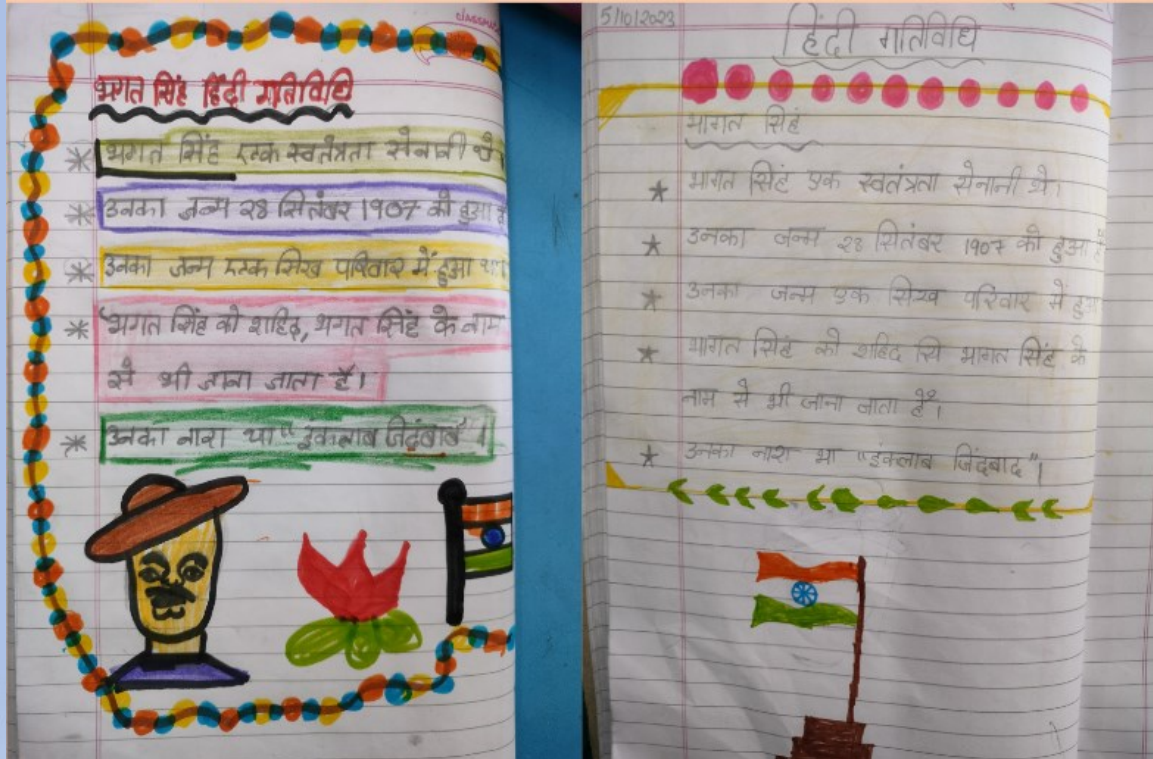 classmate
भगत सिंह हिंदी गतिविधि
भगत सिंह एक स्वतंत्रता सेनानी थे
उनका जन्म २8 सितंबर 1907 को हुआ है
उनका जन्म एक सिख परिवार में हुआ था
भगत सिंह को शहिद, भगत सिंह के नाम
से भी जाना जाता है।
उनका नारा था "इकलाब जिदंबाद"।
5/10/2023
हिंदी गतिविधि
भागत सिंह
भागत सिंह एक स्वतंत्रता सेनानी थे।
उनका जन्म २8 सितंबर 1907 को हुआ है
उनका जन्म एक सिख परिवार में हुआ
भागत सिंह को शहिद भागत सिंह के
नाम से भी जाना जाता है।
उनका नारा था "इंकलाब जिंदबाद"।